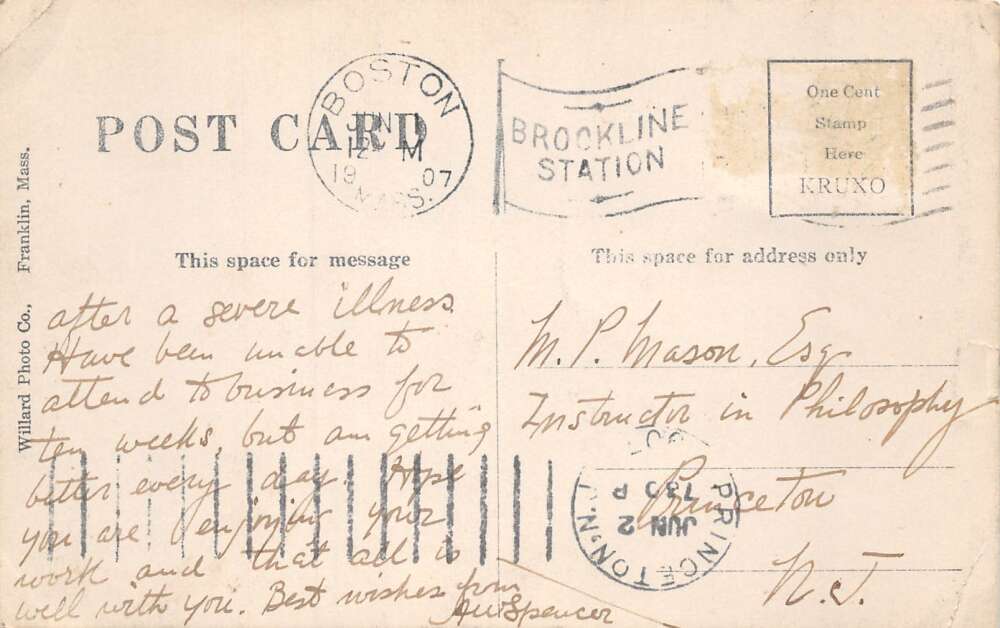 POST CARD
BOSTON
JUN 1
12 M
19 07
MASS.
BROOKLINE
STATION
One Cent
Stamp
Here
KRUXO
Willard Photo Co., Franklin, Mass.
This space for message
This space for address only
after a severe illness.
Have been unable to
attend to business for
ten weeks, but am getting
better every day. Hope
you are enjoying your
work and that all is
well with you. Best wishes from
AWSpencer
M. P. Mason, Esq
Instructor in Philosophy
Princeton
N. J.
PRINCETON, N.J.
JUN 2
730 P